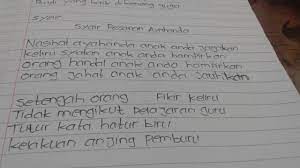 yang baik
syair
Syair Pesanan Ayahanda
Nasihat ayahanda anak anda ingatkan
Keliru syaitan anak anda hampirkan
orang handal anak anda hampirkan
orang jahat anak anda jauhkan
setengah orang fikir keliru
Tidak mengikut pelajaran guru
Tutur kata haru biru
Kelakuan anjing pemburu